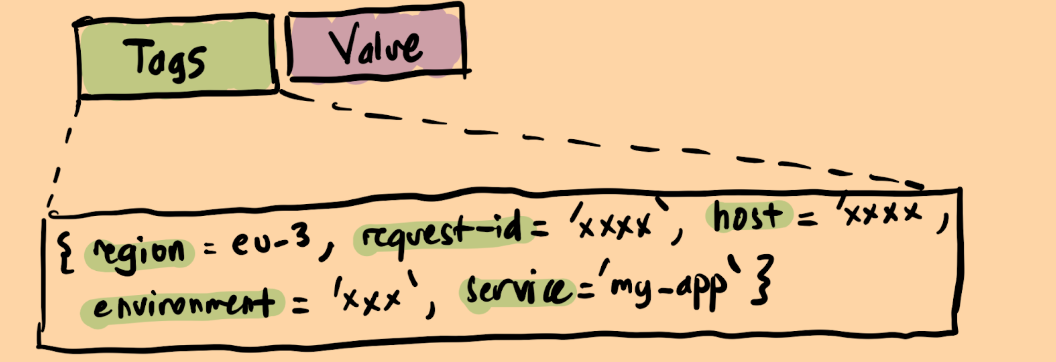 Tags
Value
{ region = eu-3, request-id = 'xxxx', host = 'xxxx',
environment = 'xxx', service='my-app' }